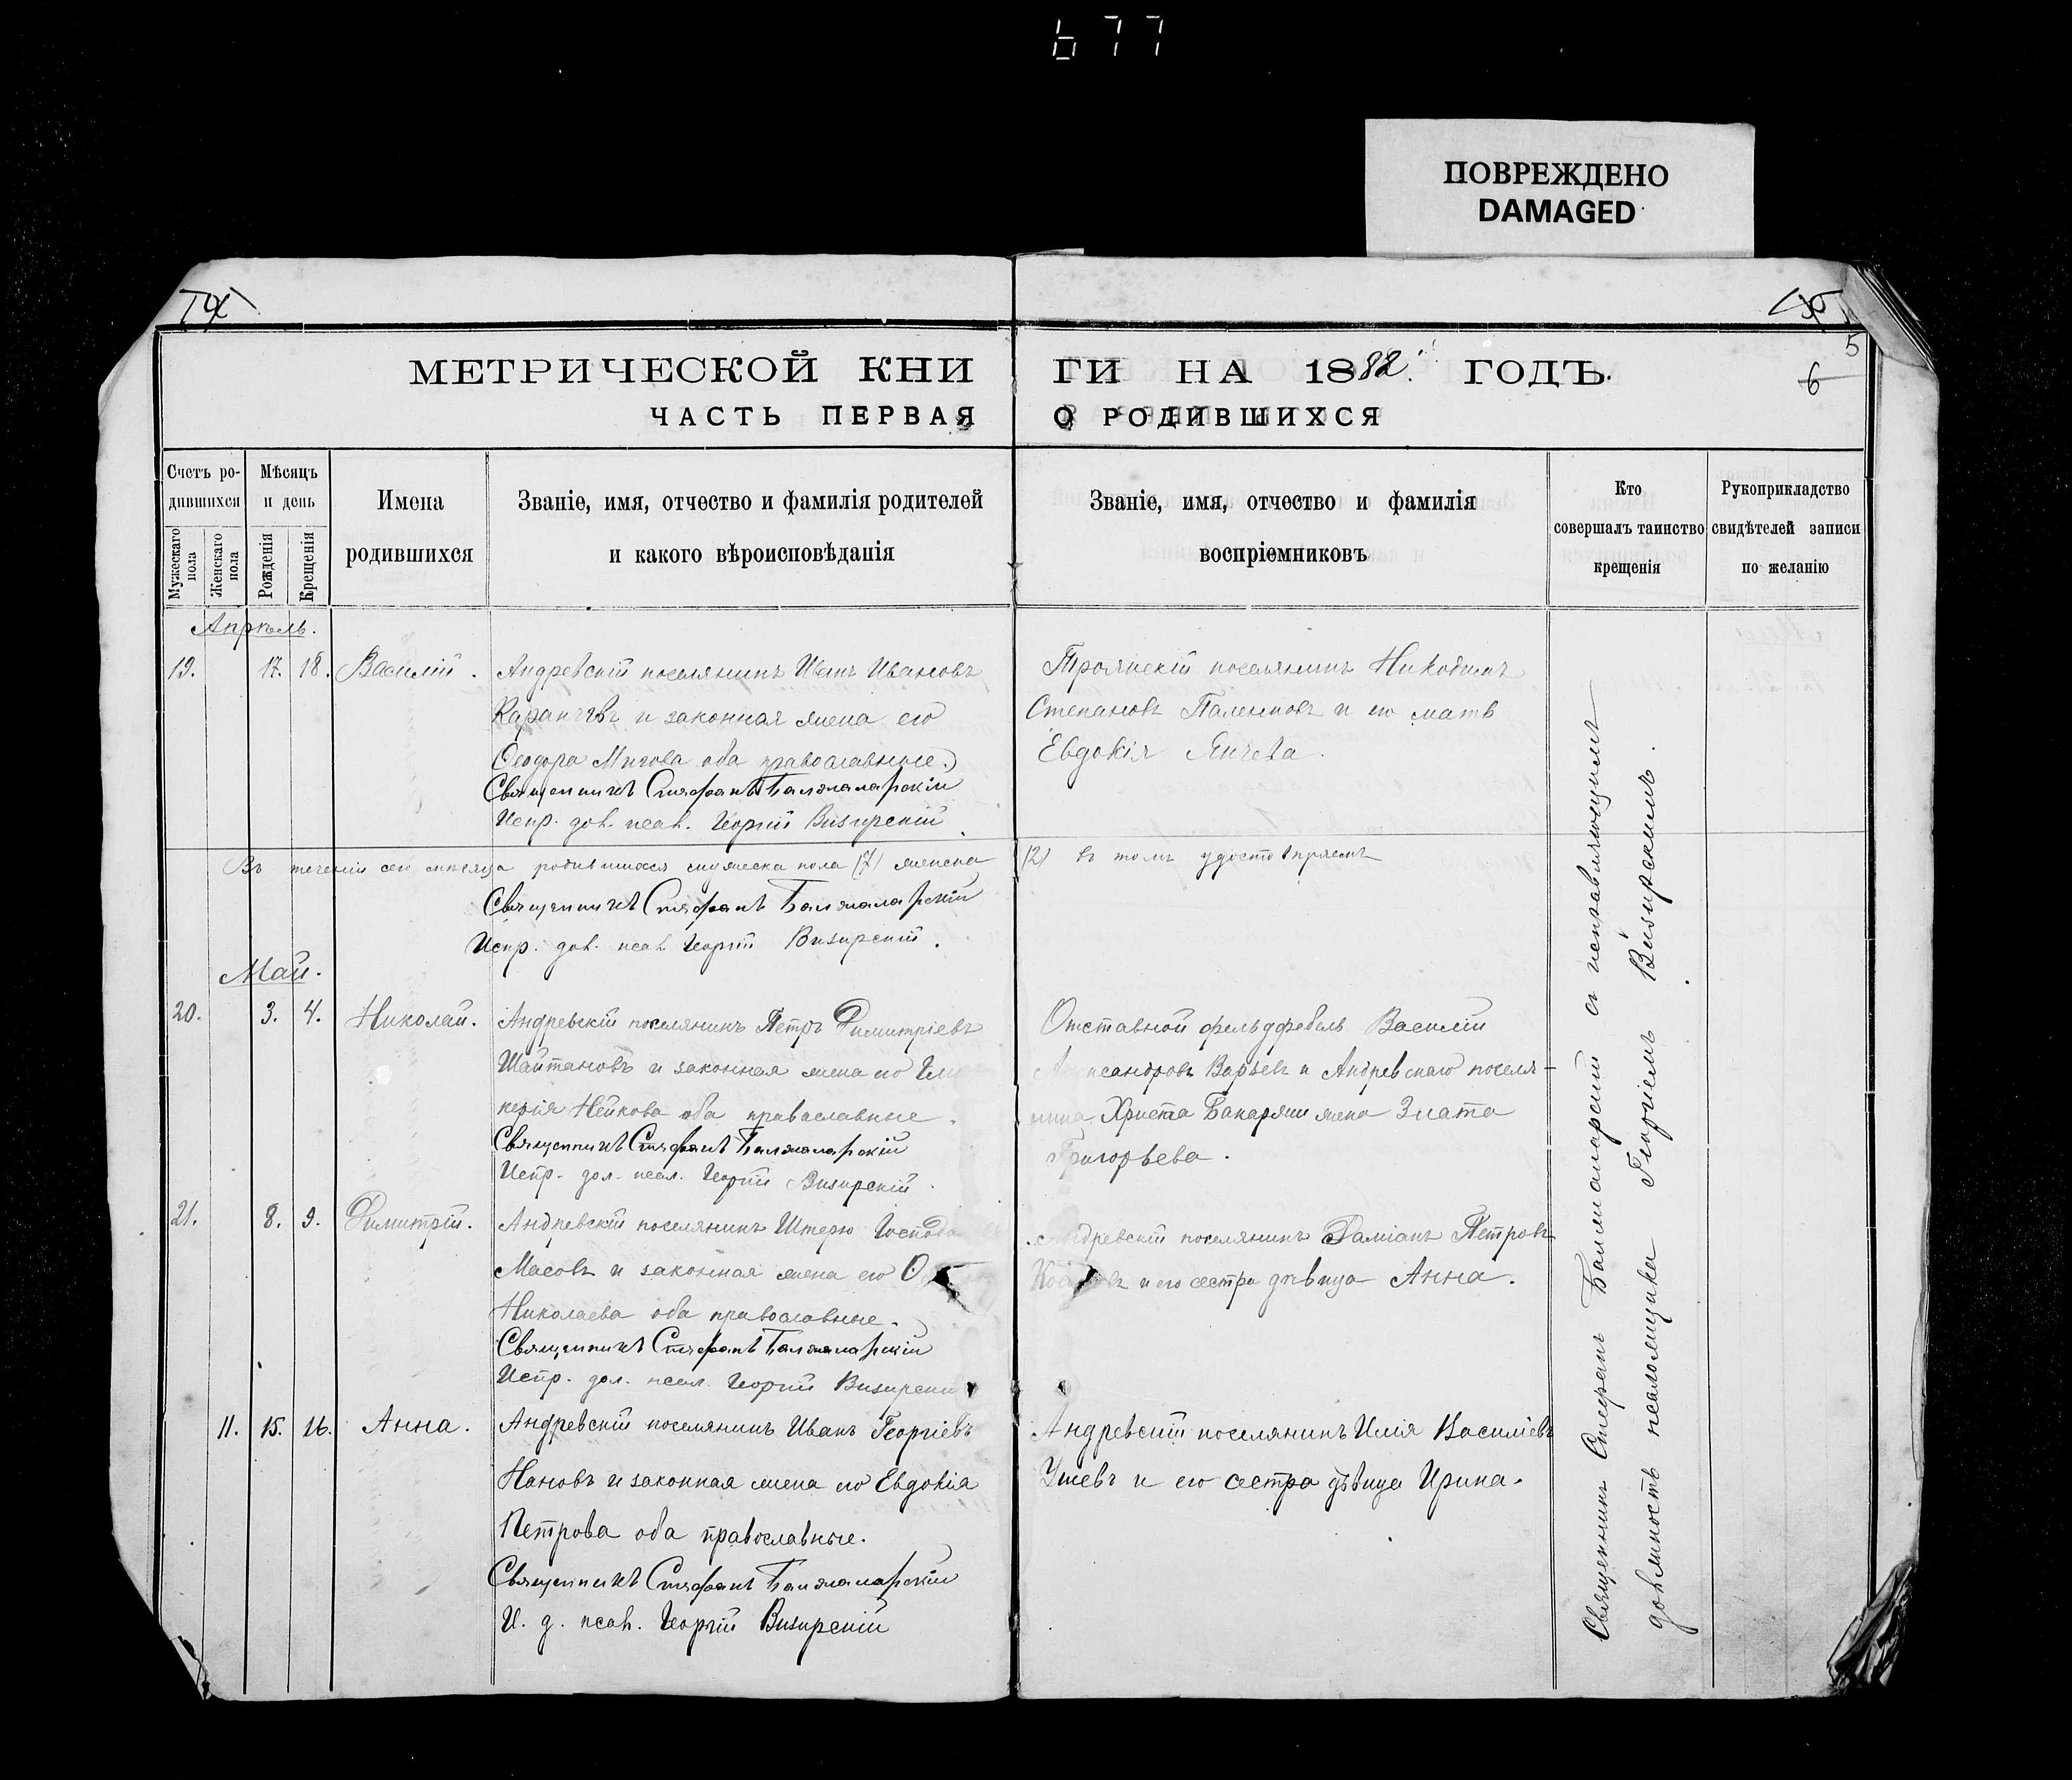 677
ПОВРЕЖДЕНО
DAMAGED
5
6
МЕТРИЧЕСКОЙ КНИГИ НА 1882 ГОДЪ.
ЧАСТЬ ПЕРВАЯ О РОДИВШИХСЯ
Счетъ ро-
дившихся
Мужескаго пола
Женскаго пола
Мѣсяцъ
и день
Рожденія
Крещенія
Имена
родившихся
Званіе, имя, отчество и фамилія родителей
и какого вѣроисповѣданія
Званіе, имя, отчество и фамилія
воспріемниковъ
Кто
совершалъ таинство
крещенія
Рукоприкладство
свидѣтелей записи
по желанію
Апрѣль.
19. 17. 18. Василій.
Андревскій поселянинъ Иванъ Ивановъ
и законная жена его
Ѳеодора оба православные.
Священникъ Стефанъ Балжаларскій
Испр. дол. псал. Георгій Визирскій
Троянскій поселянинъ Никодимъ
Степановъ и его мать
Евдокія Янчева.
Въ теченіи сего мѣсяца родившихся мужеска пола (7) женска (2) въ томъ удостовѣряемъ
Священникъ Стефанъ Балжаларскій
Испр. дол. псал. Георгій Визирскій.
Май.
20. 3. 4. Николай.
Андревскій поселянинъ Петръ Димитріевъ
Шайтановъ и законная жена его Гли
керія Нейкова оба православные.
Священникъ Стефанъ Балжаларскій
Испр. дол. псал. Георгій Визирскій.
Отставной фельдфебель Василій
и Андревскаго поселя-
нина Христа жена Злата
Григорьева.
21. 8. 9. Димитрій.
Андревскій поселянинъ Штерю
Масовъ и законная жена его
Николаева оба православные.
Священникъ Стефанъ Балжаларскій
Испр. дол. псал. Георгій Визирскій
Андревскій поселянинъ Даміанъ Петровъ
и его сестра дѣвица Анна.
11. 15. 16. Анна.
Андревскій поселянинъ Иванъ Георгіевъ
Нановъ и законная жена его Евдокія
Петрова оба православные.
Священникъ Стефанъ Балжаларскій
И. д. псал. Георгій Визирскій
Андревскій поселянинъ Илія Василіевъ
и его сестра дѣвица Ирина.
Священникъ Стефанъ Балжаларскій съ исправляющимъ
должность псаломщика Георгіемъ Визирскимъ.